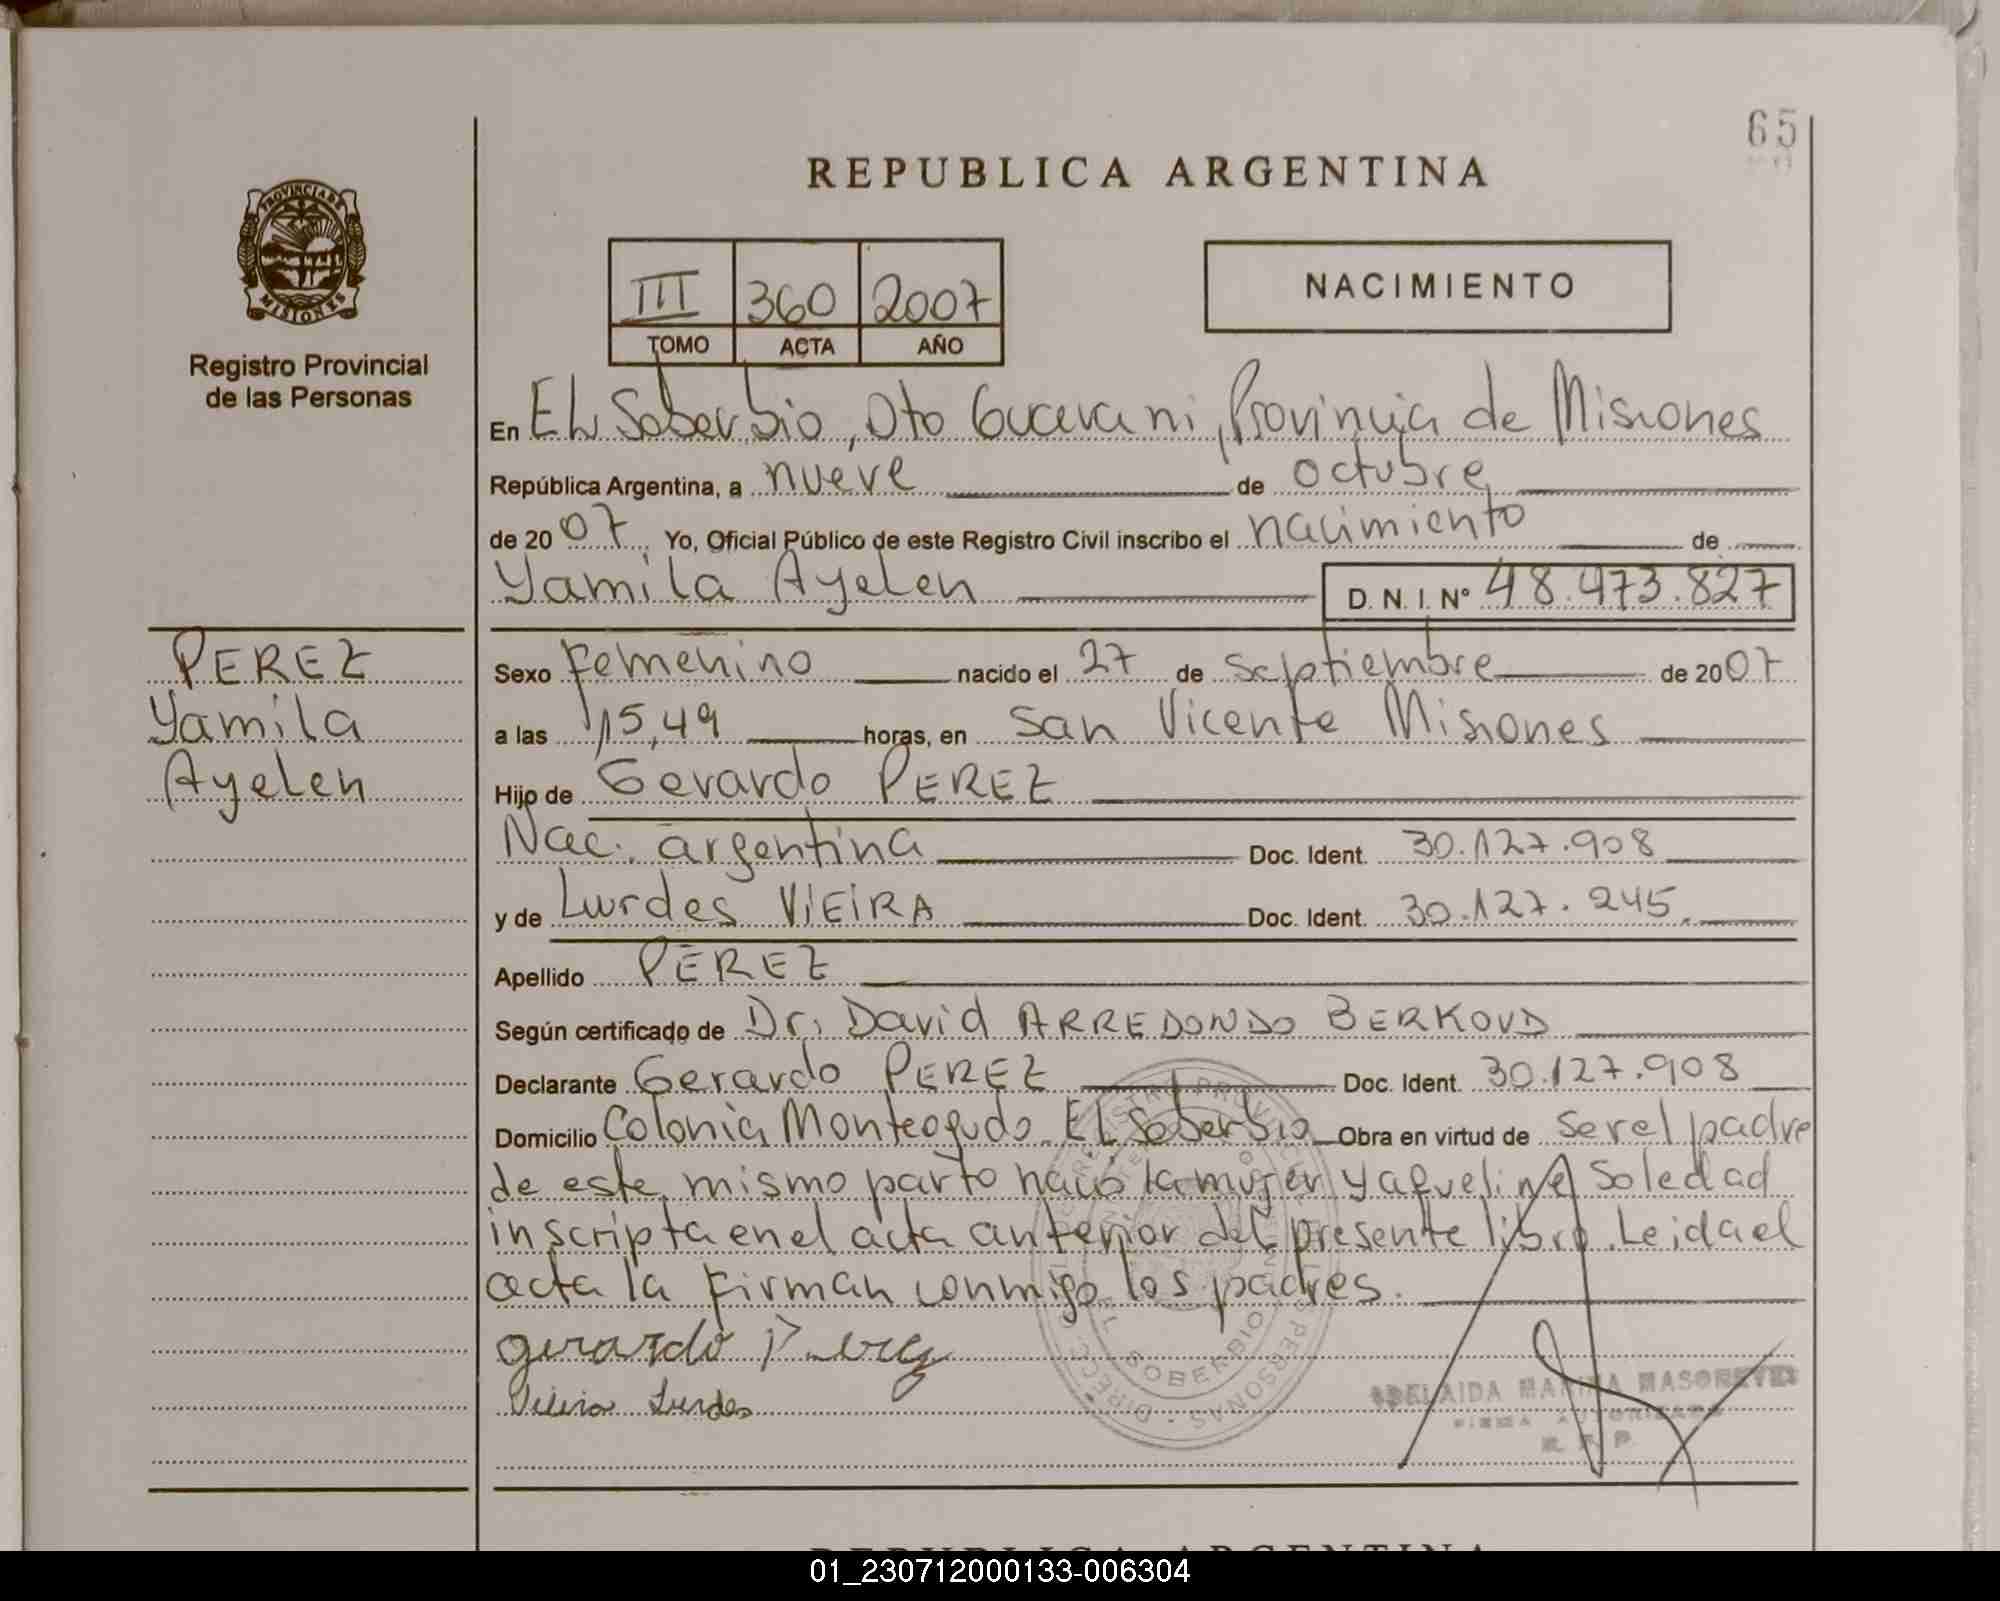 65
REPUBLICA ARGENTINA
PROVINCIA DE
MISIONES
Registro Provincial
de las Personas
III 360 2007
TOMO ACTA AÑO
NACIMIENTO
En EL Soberbio, Dto Guarani, Provincia de Misiones
República Argentina, a nueve de octubre
de 2007. Yo, Oficial Público de este Registro Civil inscribo el nacimiento de
Yamila Ayelen D. N. I. N° 48.473.827
PEREZ
Yamila
Ayelen
Sexo Femenino nacido el 27 de Septiembre de 2007
a las 15,49 horas, en San Vicente Misiones
Hijo de Gerardo PEREZ
Nac. argentina Doc. Ident. 30.127.908
y de Lurdes VIEIRA Doc. Ident. 30.127.245.
Apellido PEREZ
Según certificado de Dr. David ARREDONDO BERKOVD
Declarante Gerardo PEREZ Doc. Ident. 30.127.908
Domicilio Colonia Monteagudo EL Soberbio Obra en virtud de ser el padre
de este mismo parto nació la mujer Yaqueline Soledad
inscripta en el acta anterior del presente libro. Leida el
acta la firman conmigo los padres.
gerardo Perez
Vieira Lurdes
SOBERBIO
PERSONAS
ADELAIDA MARINA
FIRMA AUTORIZADA
R. P. P.
REPUBLICA ARGENTINA
01_230712000133-006304